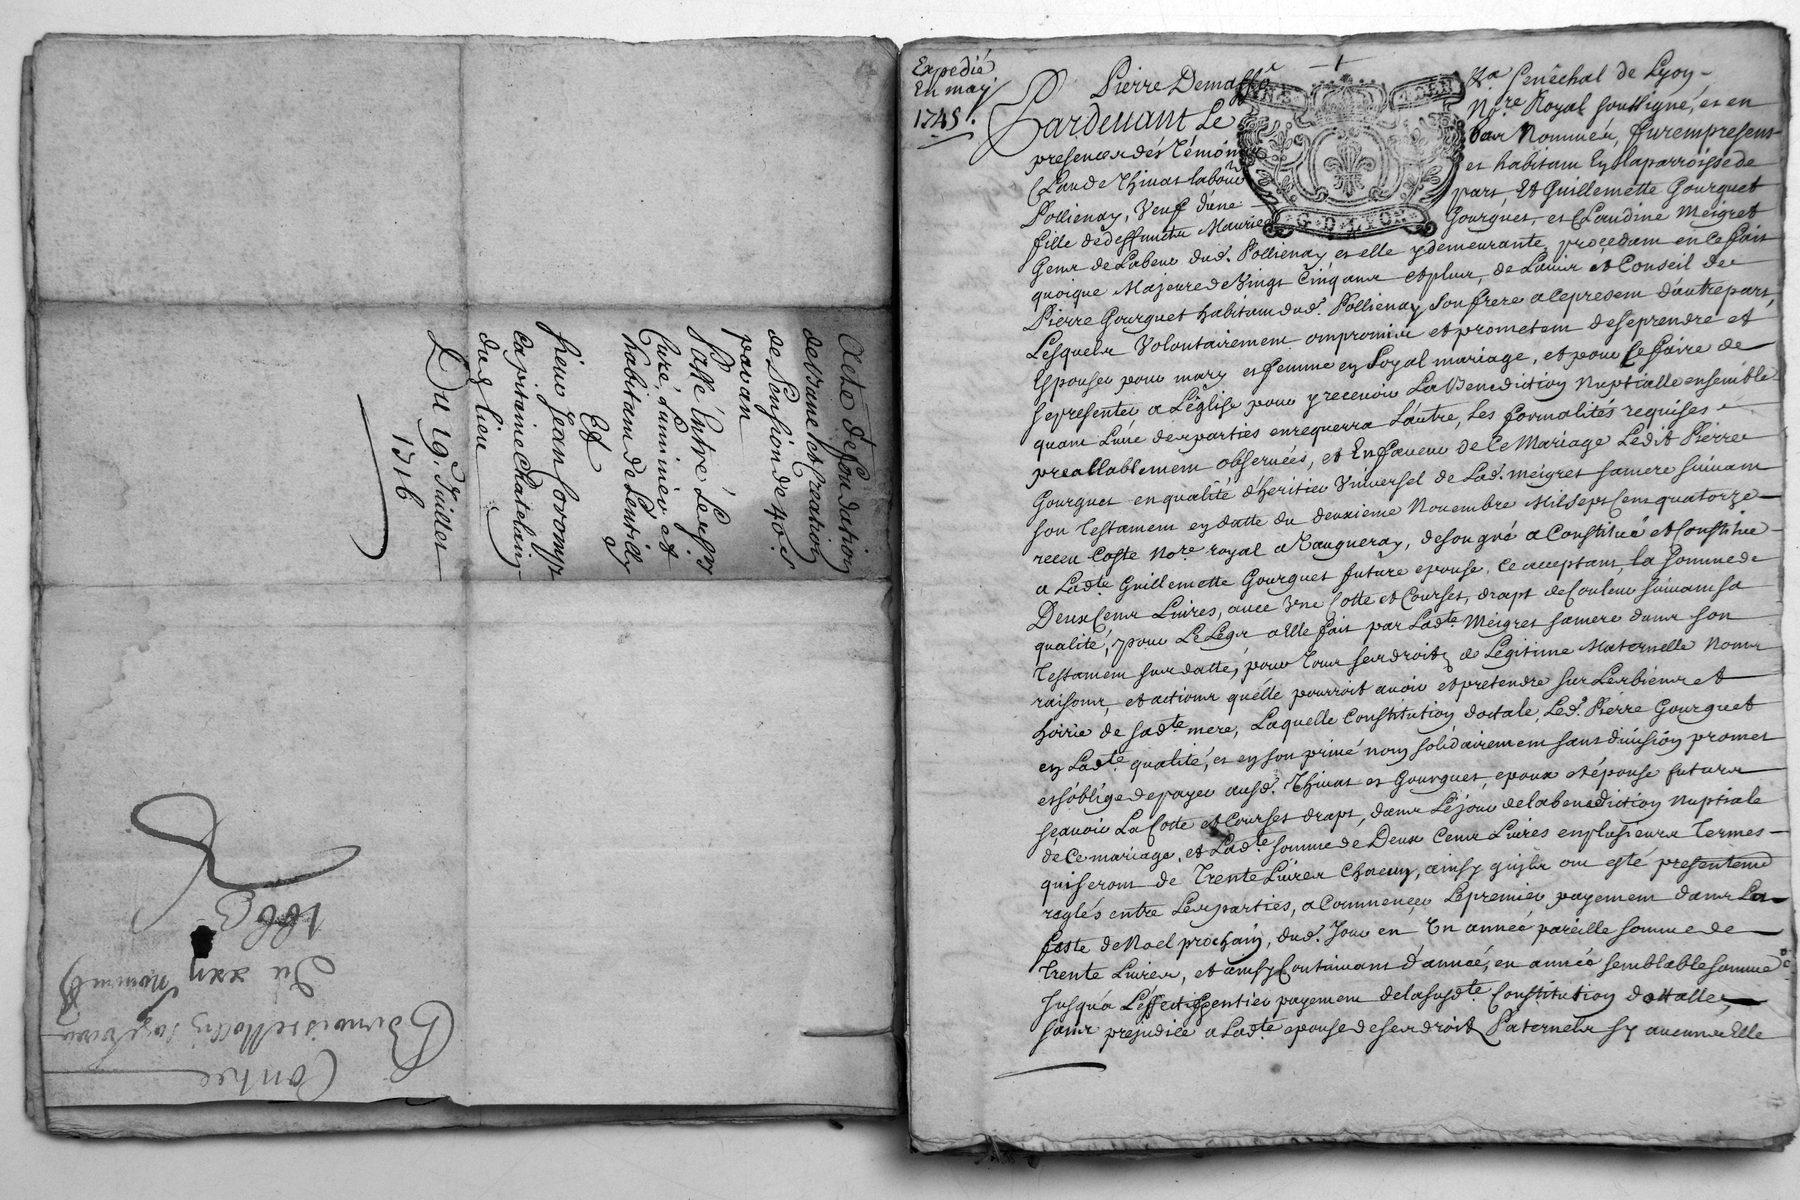 Acte de fondation
de vane et creation
de pension de 40 s
pavan
Passé Entre Les srs
Curé, Luminier et
habitans de Lentilly
Et
sieur Jean
capitaine chatelain
dud. lieu
Du 19e. Juillet
1716
Contre
Du xxij
1663
Expedié
En may
1745.
Pierre
Senéchal de Lyon
Pardevant Le
Nore. Royal soussigné, et en
presence des Témoins
bas Nommés, furent presens
Claude Thivas labour
et habitant En la parroisse de
Pollienay, veuf d'une
part, Et Guillemette Gourguet
fille de deffuncts Maurice
Gourguet, et Claudine Meigret
Gens de Labeur dud. Pollienay et elle y demeurante, procedant en ce fait
quoique Majeure de Vingt Cinq ans et plus, de Lavis et Conseil de
Pierre Gourguet habitant dud. Pollienay son frere a ce present d'autre part,
Lesquels Volontairement ont promis et prometent de se prendre et
Espouser pour mary et femme en Loyal mariage, et pour ce faire de
se presenter a L'église pour y recevoir La Benediction Nuptialle ensemble
quant L'une des parties en requerra L'autre, Les formalités requises
preallablement observées, et En faveur de ce Mariage Ledit Pierre
Gourguet en qualité d'heritier Universel de Lad. meigret sa mere suivant
son Testament en datte du deuxieme Novembre Mil sept Cens quatorze
receu Coste Nore. royal a Vaugneray, de son gré a Constitué et Constitue
a Ladte. Guillemette Gourguet future epouse, ce acceptant, la somme de
Deux Cens Livres, avec une Cotte et Courset, drapt de Couleur suivant sa
qualité, pour Le Legs a Elle fait par Ladte. Meigret sa mere dans son
Testament sus datté, pour Tous ses droits de Légitime Maternelle Noms
raisons, et actions qu'elle pourroit avoir et pretendre sur Les biens et
hoirie de sadte. mere, Laquelle Constitution dottale, Led. Pierre Gourguet
en Ladte. qualité, et en son privé nom solidairement sans division promet
et s'oblige de payer ausd. Thivas et Gourguet, epoux et épouse futurs
sçavoir La Cotte et Courset drapt, dans Le jour de la benediction Nuptiale
de Ce mariage, et Ladte. somme de Deux Cens Livres en plusieurs Termes
qui seront de Trente Livres Chacun, ainsy qu'ils ont esté presentement
reglés entre Les parties, a Commencer Le premier payement dans La
feste de Noel prochain, dud. Jour en Un année pareille somme de
Trente Livres, et ainsy Continuant d'année, en année semblable somme
Jusqu'a L'effectif Entier payement de la susdte. Constitution dottalle,
sans prejudice a Ladte. epouse de ses droits Paternels sy aucuns Elle